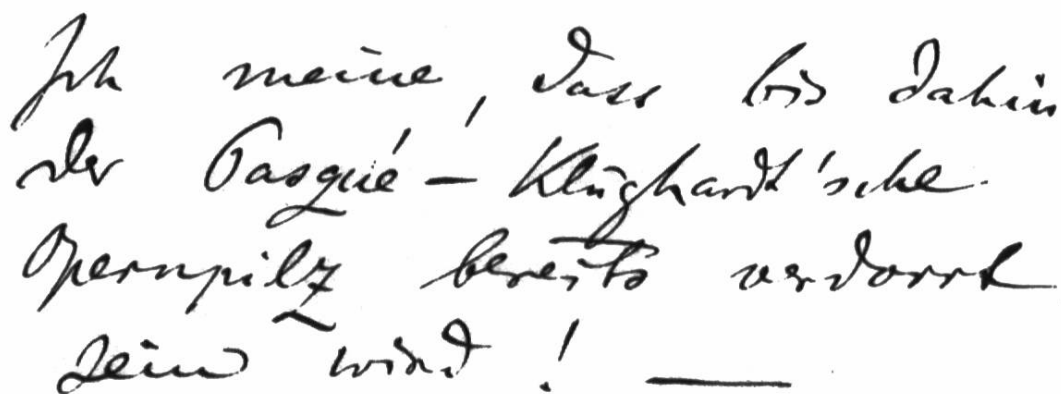 Ich meine, dass bis dahin
der Pasqué – Klughardt'sche
Opernpilz bereits verdorrt
sein wird! —